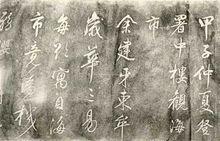 甲子仲夏登
署中樓觀海
市
余建牙東牟
歲華三易
每欲寓目海
市竟爲機